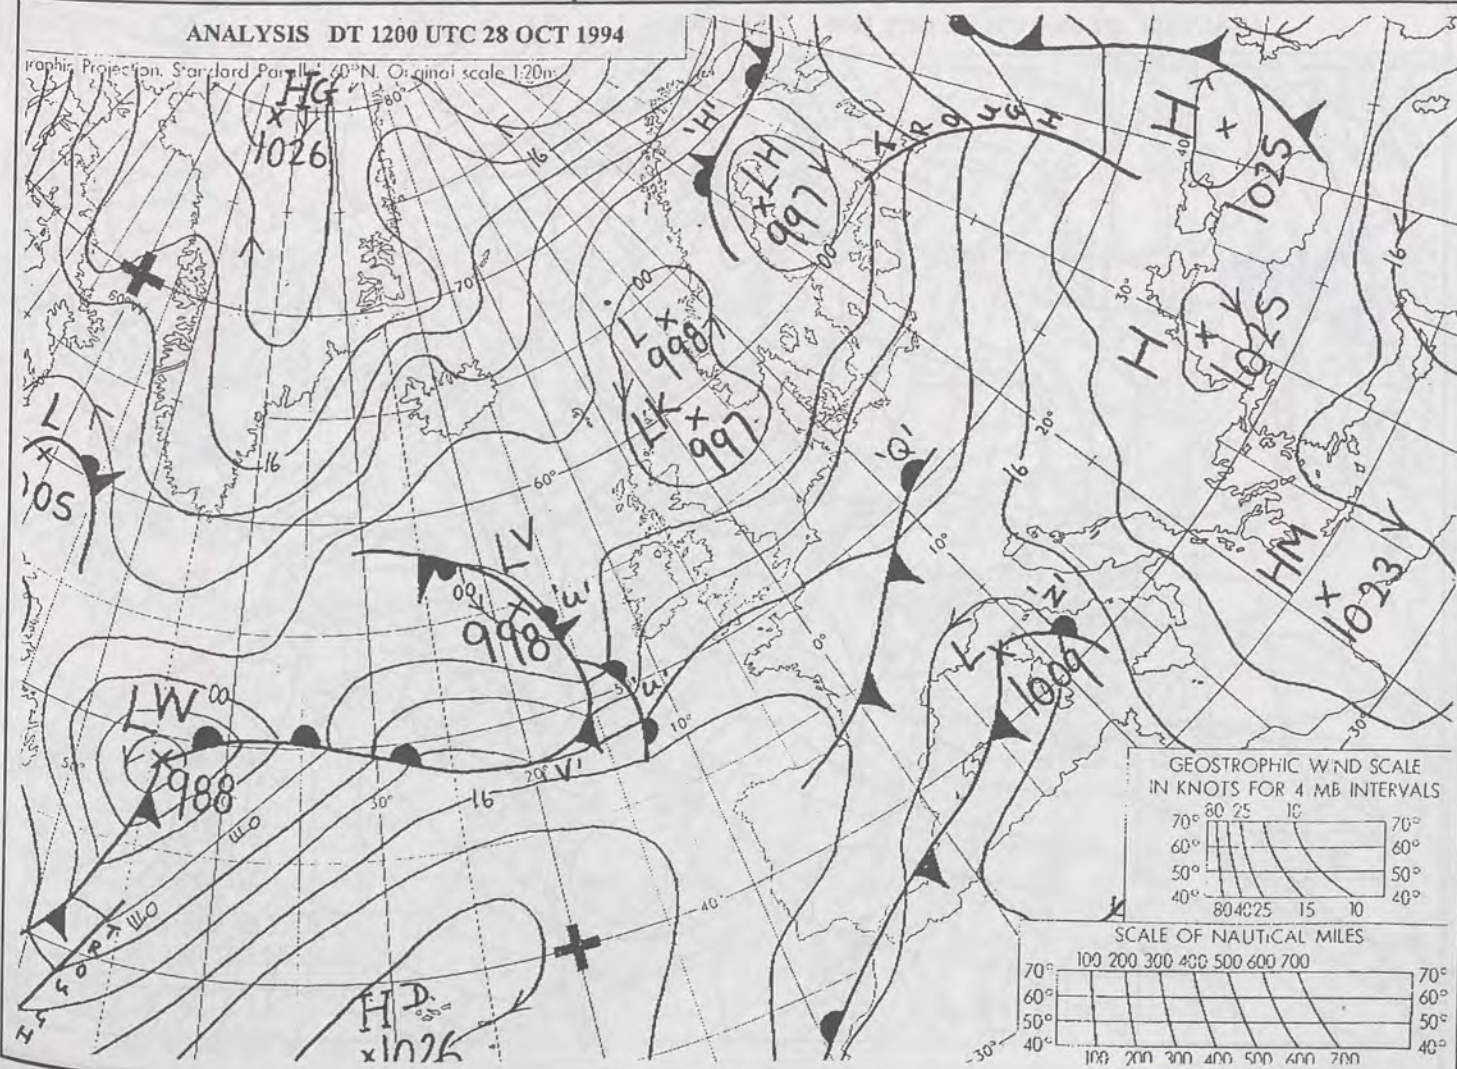 ANALYSIS DT 1200 UTC 28 OCT 1994
raphic Projection. Standard Parallel 60°N. Original scale 1:20m
HG
1026
80°
16
70°
'H'
LH
997
00
TROUGH
H
1025
40°
16
30°
H
1025
00
L
998
LK
997
60°
L
16
'Q'
20°
16
10°
0°
HM
1023
30°
LV
00
998
'U'
'U'
LW
00
988
50°
50°
10°
20°
'V'
30°
16
40°
'Z'
L
1009
H D
1026
30°
GEOSTROPHIC WIND SCALE
IN KNOTS FOR 4 MB INTERVALS
80 25 10
70° 70°
60° 60°
50° 50°
40° 40°
80 40 25 15 10
SCALE OF NAUTICAL MILES
100 200 300 400 500 600 700
70° 70°
60° 60°
50° 50°
40° 40°
100 200 300 400 500 600 700